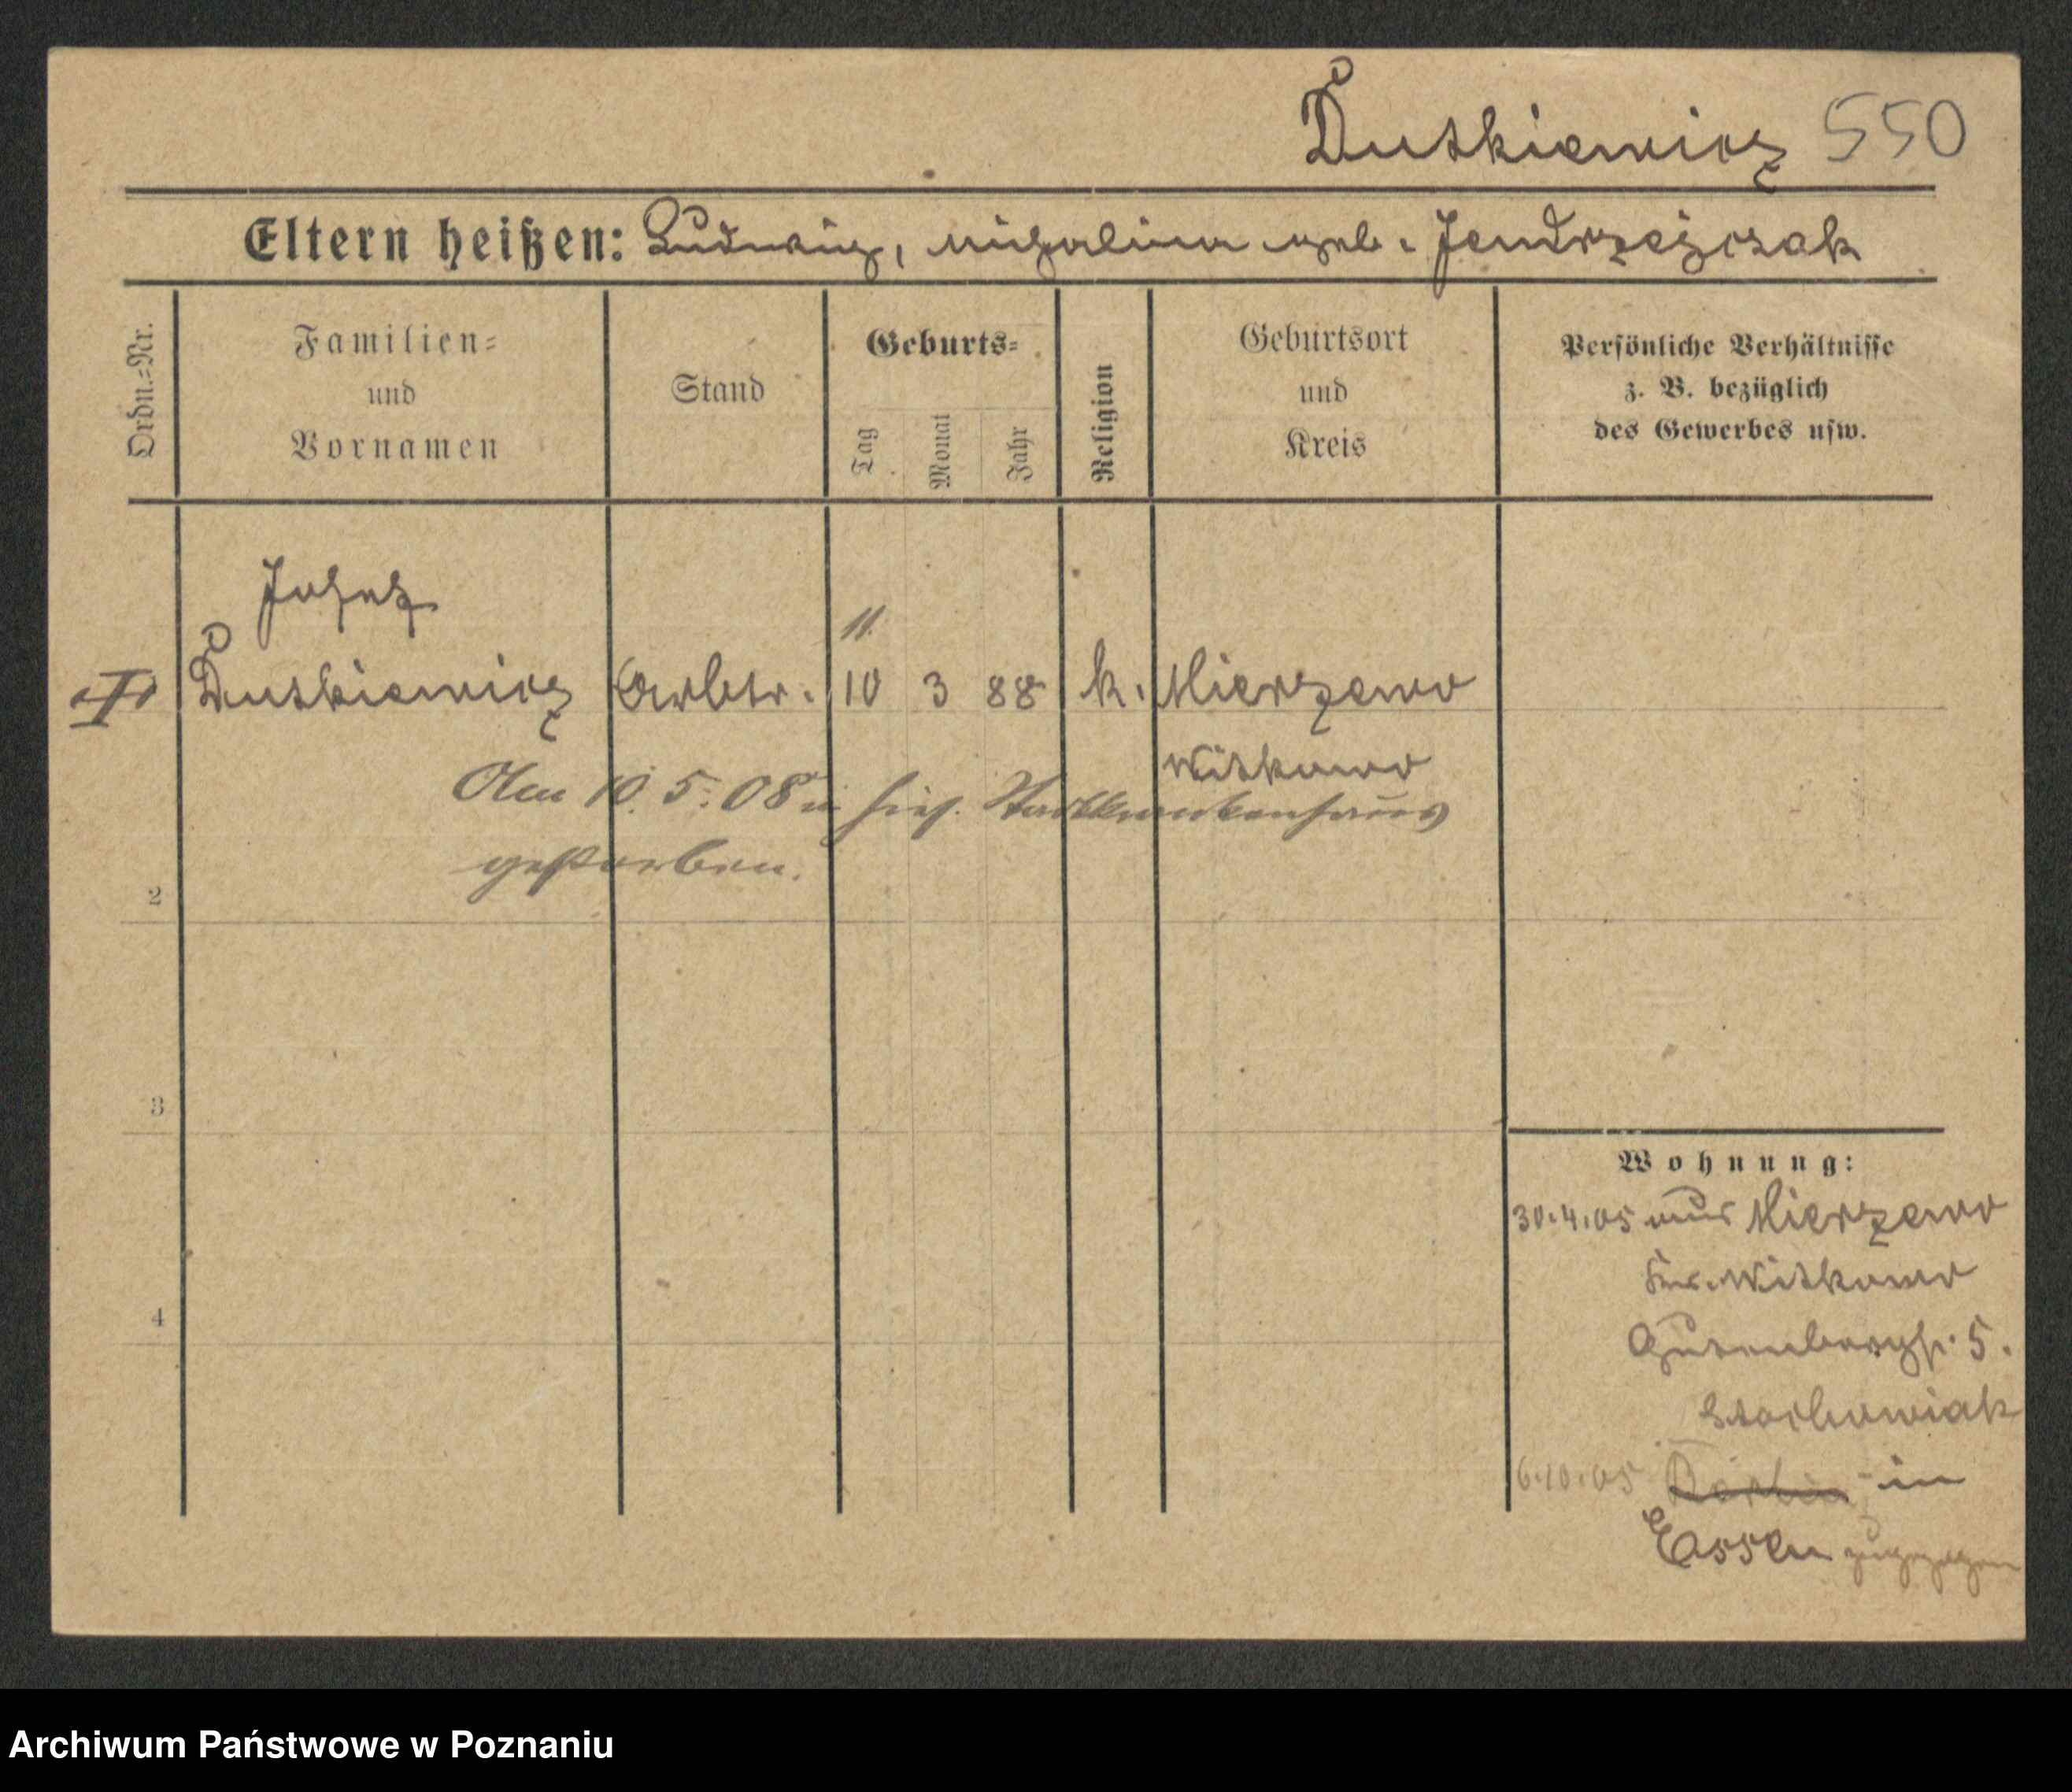 Dutkiewicz 550
Eltern heißen: Ludwig, Michalina geb. Jendrzejczak
Ordn.=Nr.
Familien=
und
Vornamen
Stand
Geburts=
Tag
Monat
Jahr
Religion
Geburtsort
und
Kreis
Persönliche Verhältnisse
z. B. bezüglich
des Gewerbes usw.
Josef
11.
Dutkiewicz Arbtr. 10 3 88 k. Mierzewo
Witkowo
Am 10. 5. 08 in hies. Stadtkrankenhaus
gestorben.
2
3
4
Wohnung:
30.4.05 aus Mierzewo
Kr. Witkowo
Gutenbergstr. 5.
Stachowiak
6.10.05 Berlin in
Essen zugezogen
Archiwum Państwowe w Poznaniu